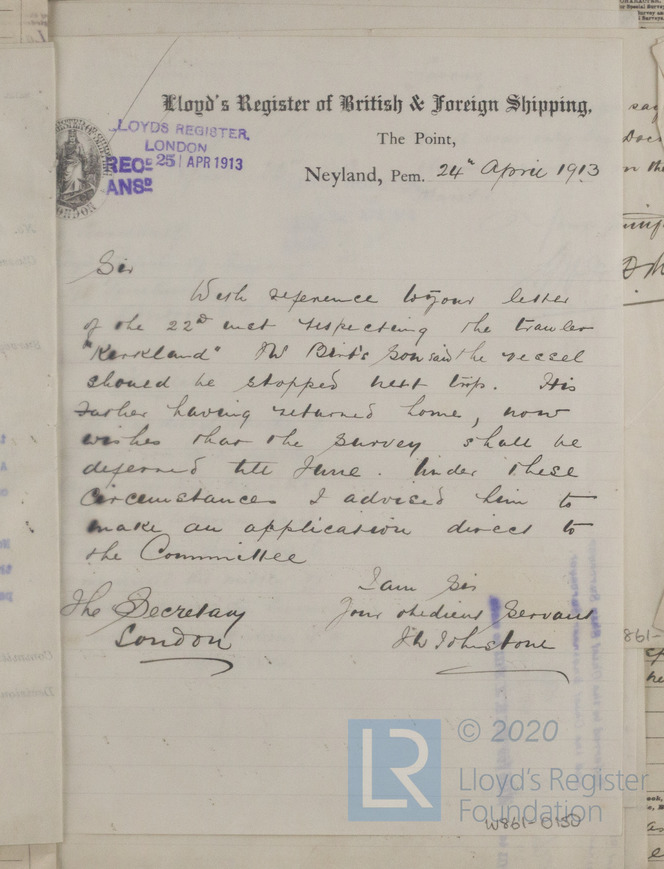 Lloyd's Register of British & Foreign Shipping,
The Point,
Neyland, Pem. 24th April 1913
LLOYDS REGISTER,
LONDON
RECD 25 APR 1913
ANSD
Sir
With reference to your letter
of the 22nd inst respecting the trawler
"Kirkland" Mr Birt's Son said the vessel
should be stopped next trip. His
Father having returned home, now
wishes that the survey shall be
deferred till June. Under these
Circumstances I advised him to
make an application direct to
the Committee
I am Sir
Your obedient Servant
The Secretary
London
JW Johnstone
© 2020
LR
Lloyd's Register
Foundation
W861-0150